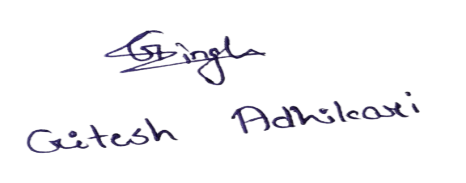 Gsingla
Gitesh Adhikari